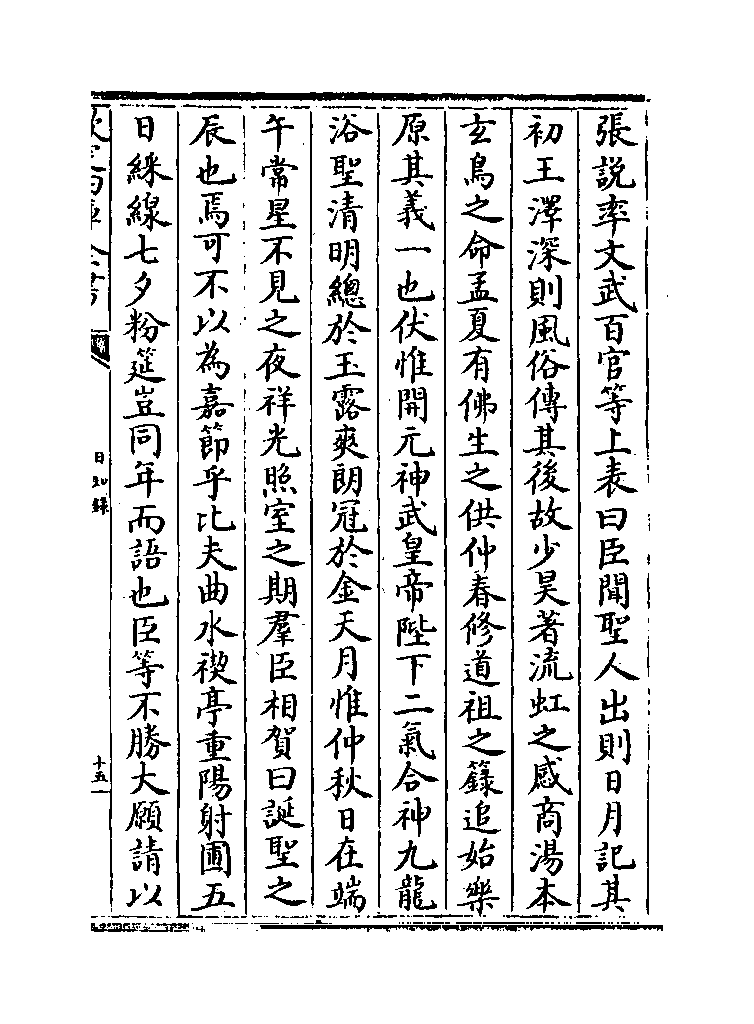 張説率文武百官等上表曰臣聞聖人出則日月記其
初王澤深則風俗傳其後故少昊著流虹之感商湯本
玄鳥之命孟夏有佛生之供仲春修道祖之籙追始樂
原其義一也伏惟開元神武皇帝陛下二氣合神九龍
浴聖清明總於玉露爽朗冠於金天月惟仲秋日在端
午常星不見之夜祥光照室之期羣臣相賀曰誕聖之
辰也焉可不以為嘉節乎比夫曲水禊亭重陽射圃五
日綵線七夕粉筵豈同年而語也臣等不勝大願請以
欽定四庫全書
日知錄
十五